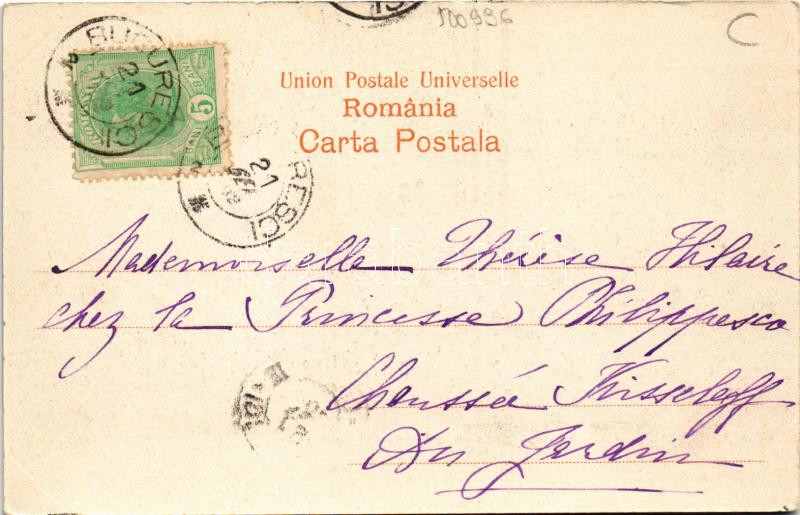 100996
C
BUCURESCI
21
5
BANI
RESCI
21
Union Postale Universelle
România
Carta Postala
Mademoiselle Thérèse Hilaire
chez la Princesse Philippesco
Chaussée Kisseleff
Au Jardin